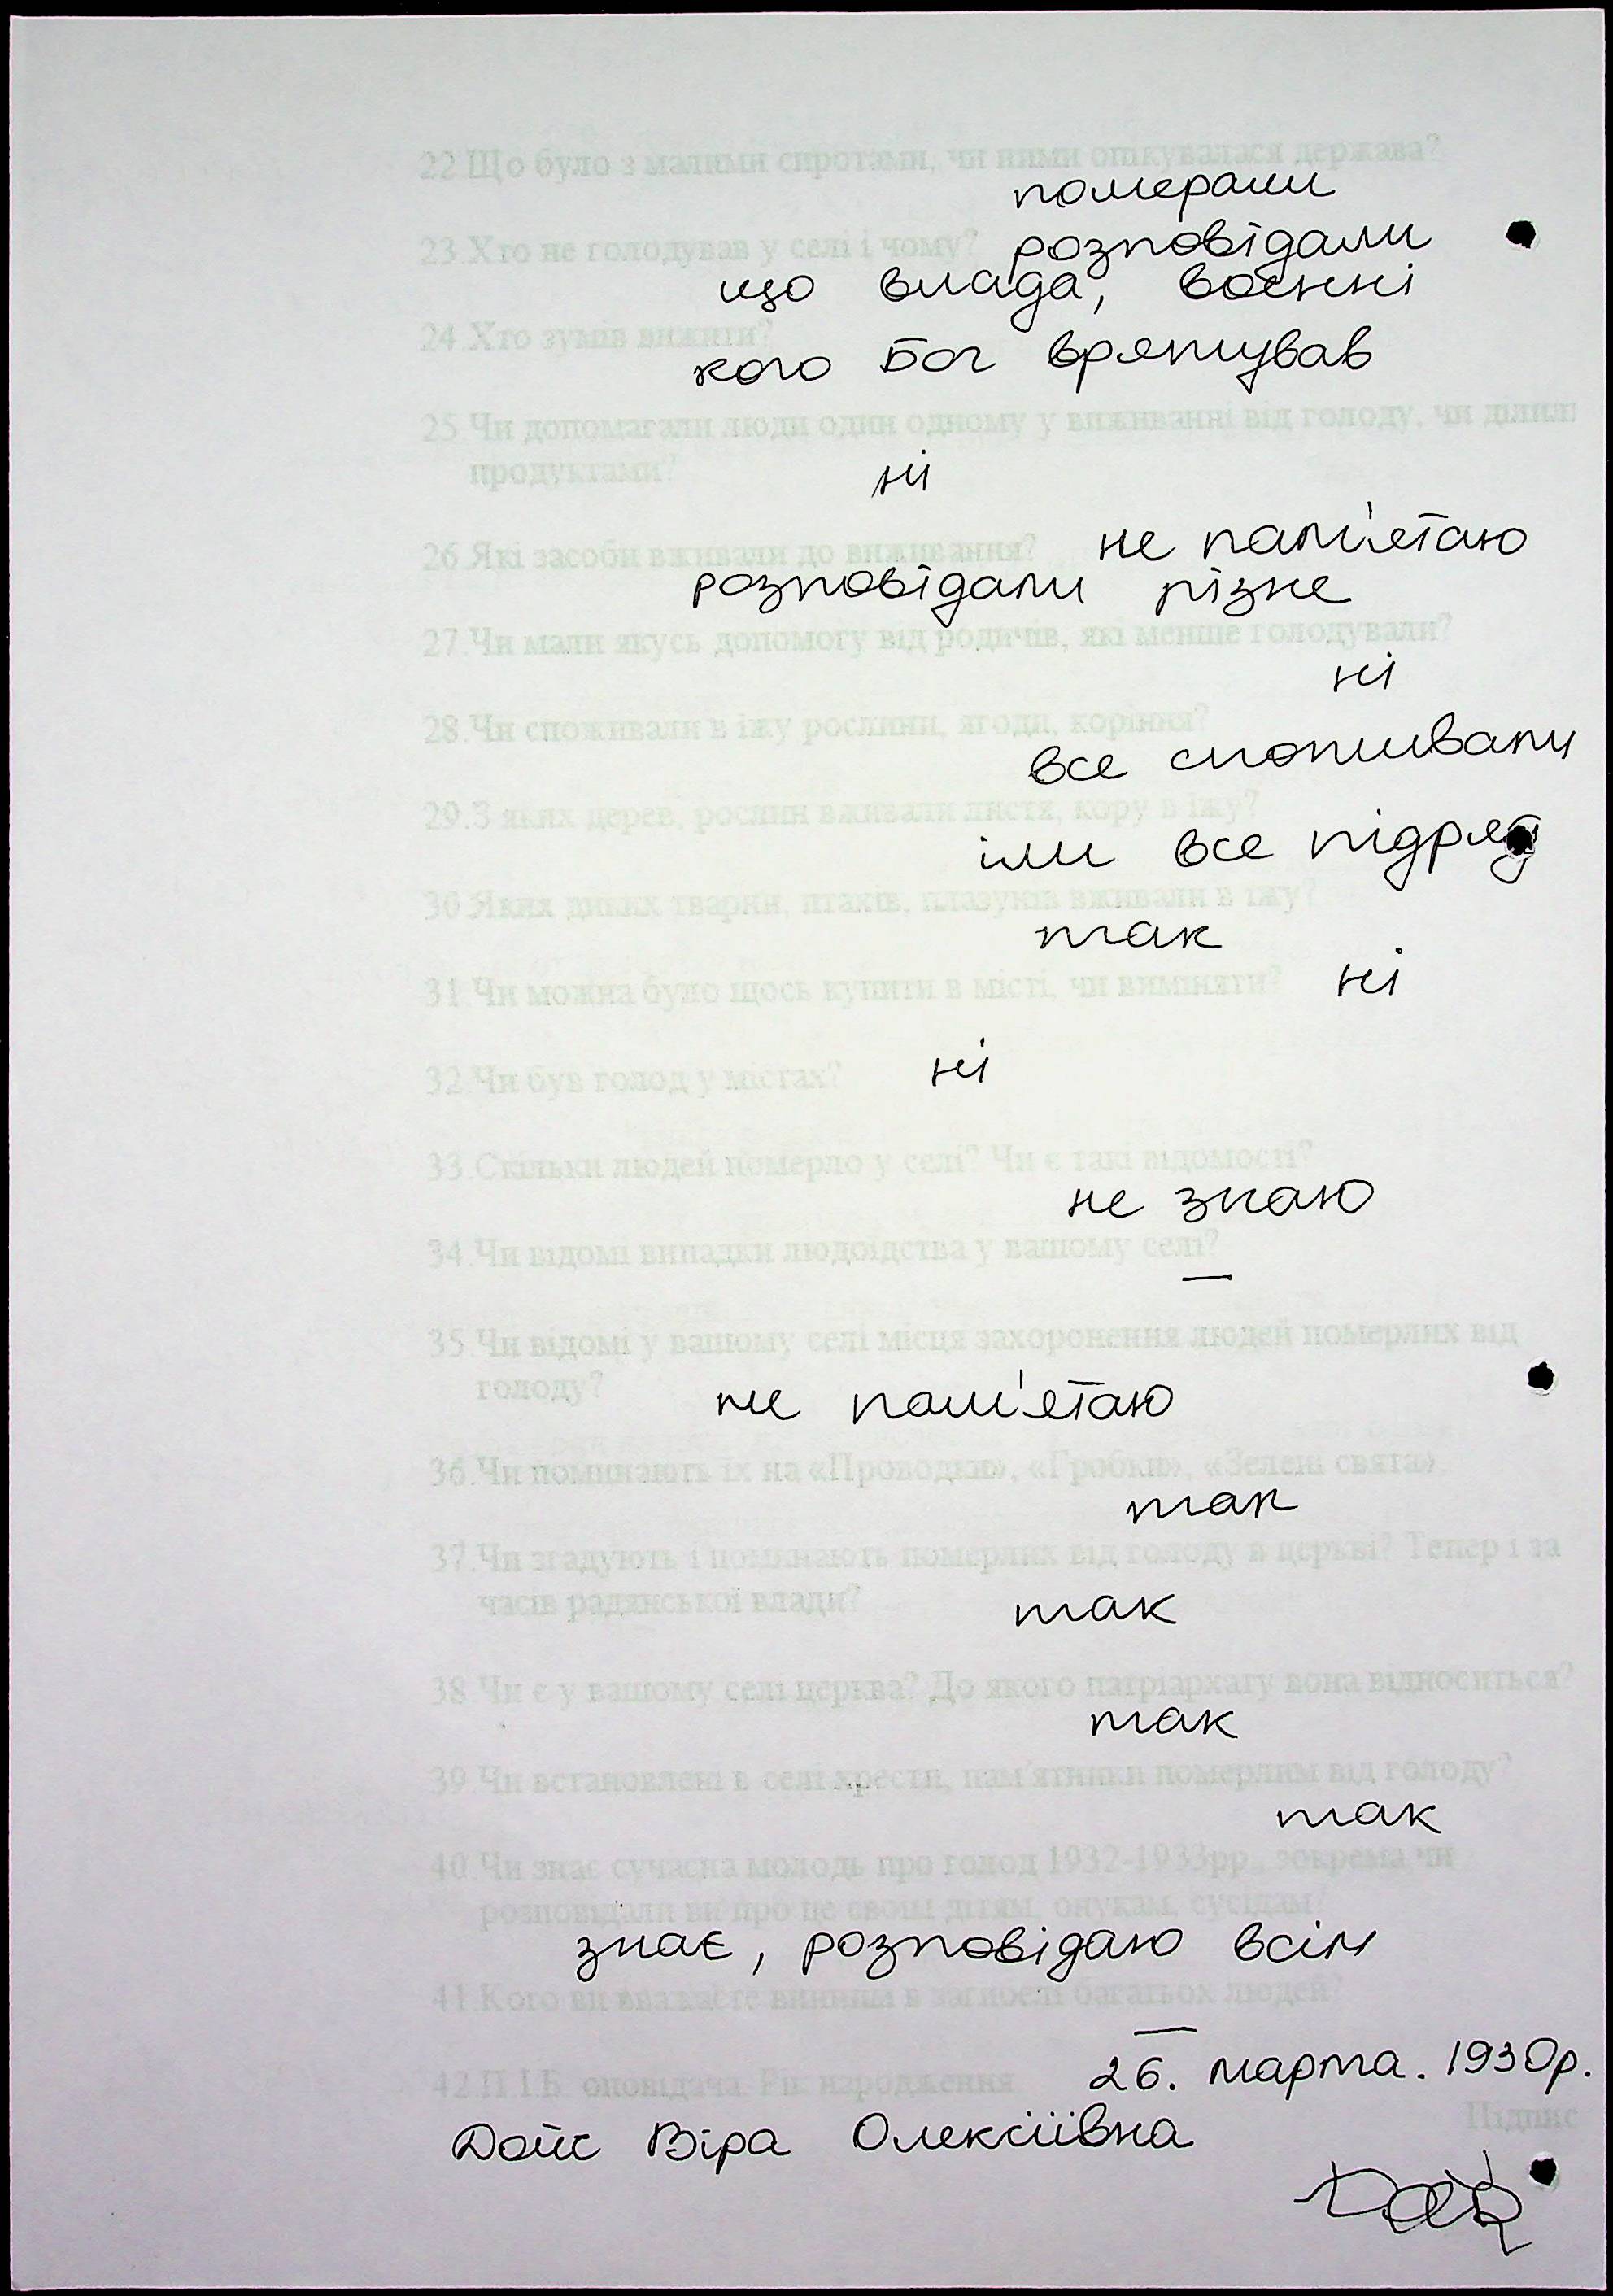 22.Що було з малими сиротами, чи ними опікувалася держава?
померали
23.Хто не голодував у селі і чому? розповідали
що влада, воєнні
24.Хто зумів вижити?
кого Бог врятував
25.Чи допомагали люди один одному у виживанні від голоду, чи ділили
продуктами? ні
26.Які засоби вживали до виживання? не пам'ятаю
розповідали різне
27.Чи мали якусь допомогу від родичів, які менше голодували?
ні
28.Чи споживали в їжу рослини, ягоди, коріння?
все споживали
29.З яких дерев, рослин вживали листя, кору в їжу?
їли все підряд
30.Яких диких тварин, птахів, плазунів вживали в їжу?
так
31.Чи можна було щось купити в місті, чи виміняти? ні
32.Чи був голод у містах? ні
33.Скільки людей померло у селі? Чи є такі відомості?
не знаю
34.Чи відомі випадки людоїдства у вашому селі?
—
35.Чи відомі у вашому селі місця захоронення людей померлих від
голоду? не пам'ятаю
36.Чи поминають їх на «Проводки», «Гробки», «Зелені свята».
так
37.Чи згадують і поминають померлих від голоду в церкві? Тепер і за
часів радянської влади? так
38.Чи є у вашому селі церква? До якого патріархату вона відноситься?
так
39.Чи встановлені в селі хрести, пам'ятники померлим від голоду?
так
40.Чи знає сучасна молодь про голод 1932-1933рр., зокрема чи
розповідали ви про це своїм дітям, онукам, сусідам?
знає, розповідаю всім
41.Кого ви вважаєте винним в загибелі багатьох людей?
—
42.П.І.Б. оповідача. Рік народження 26. марта. 1930р.
Підпис
Віра Олексіївна